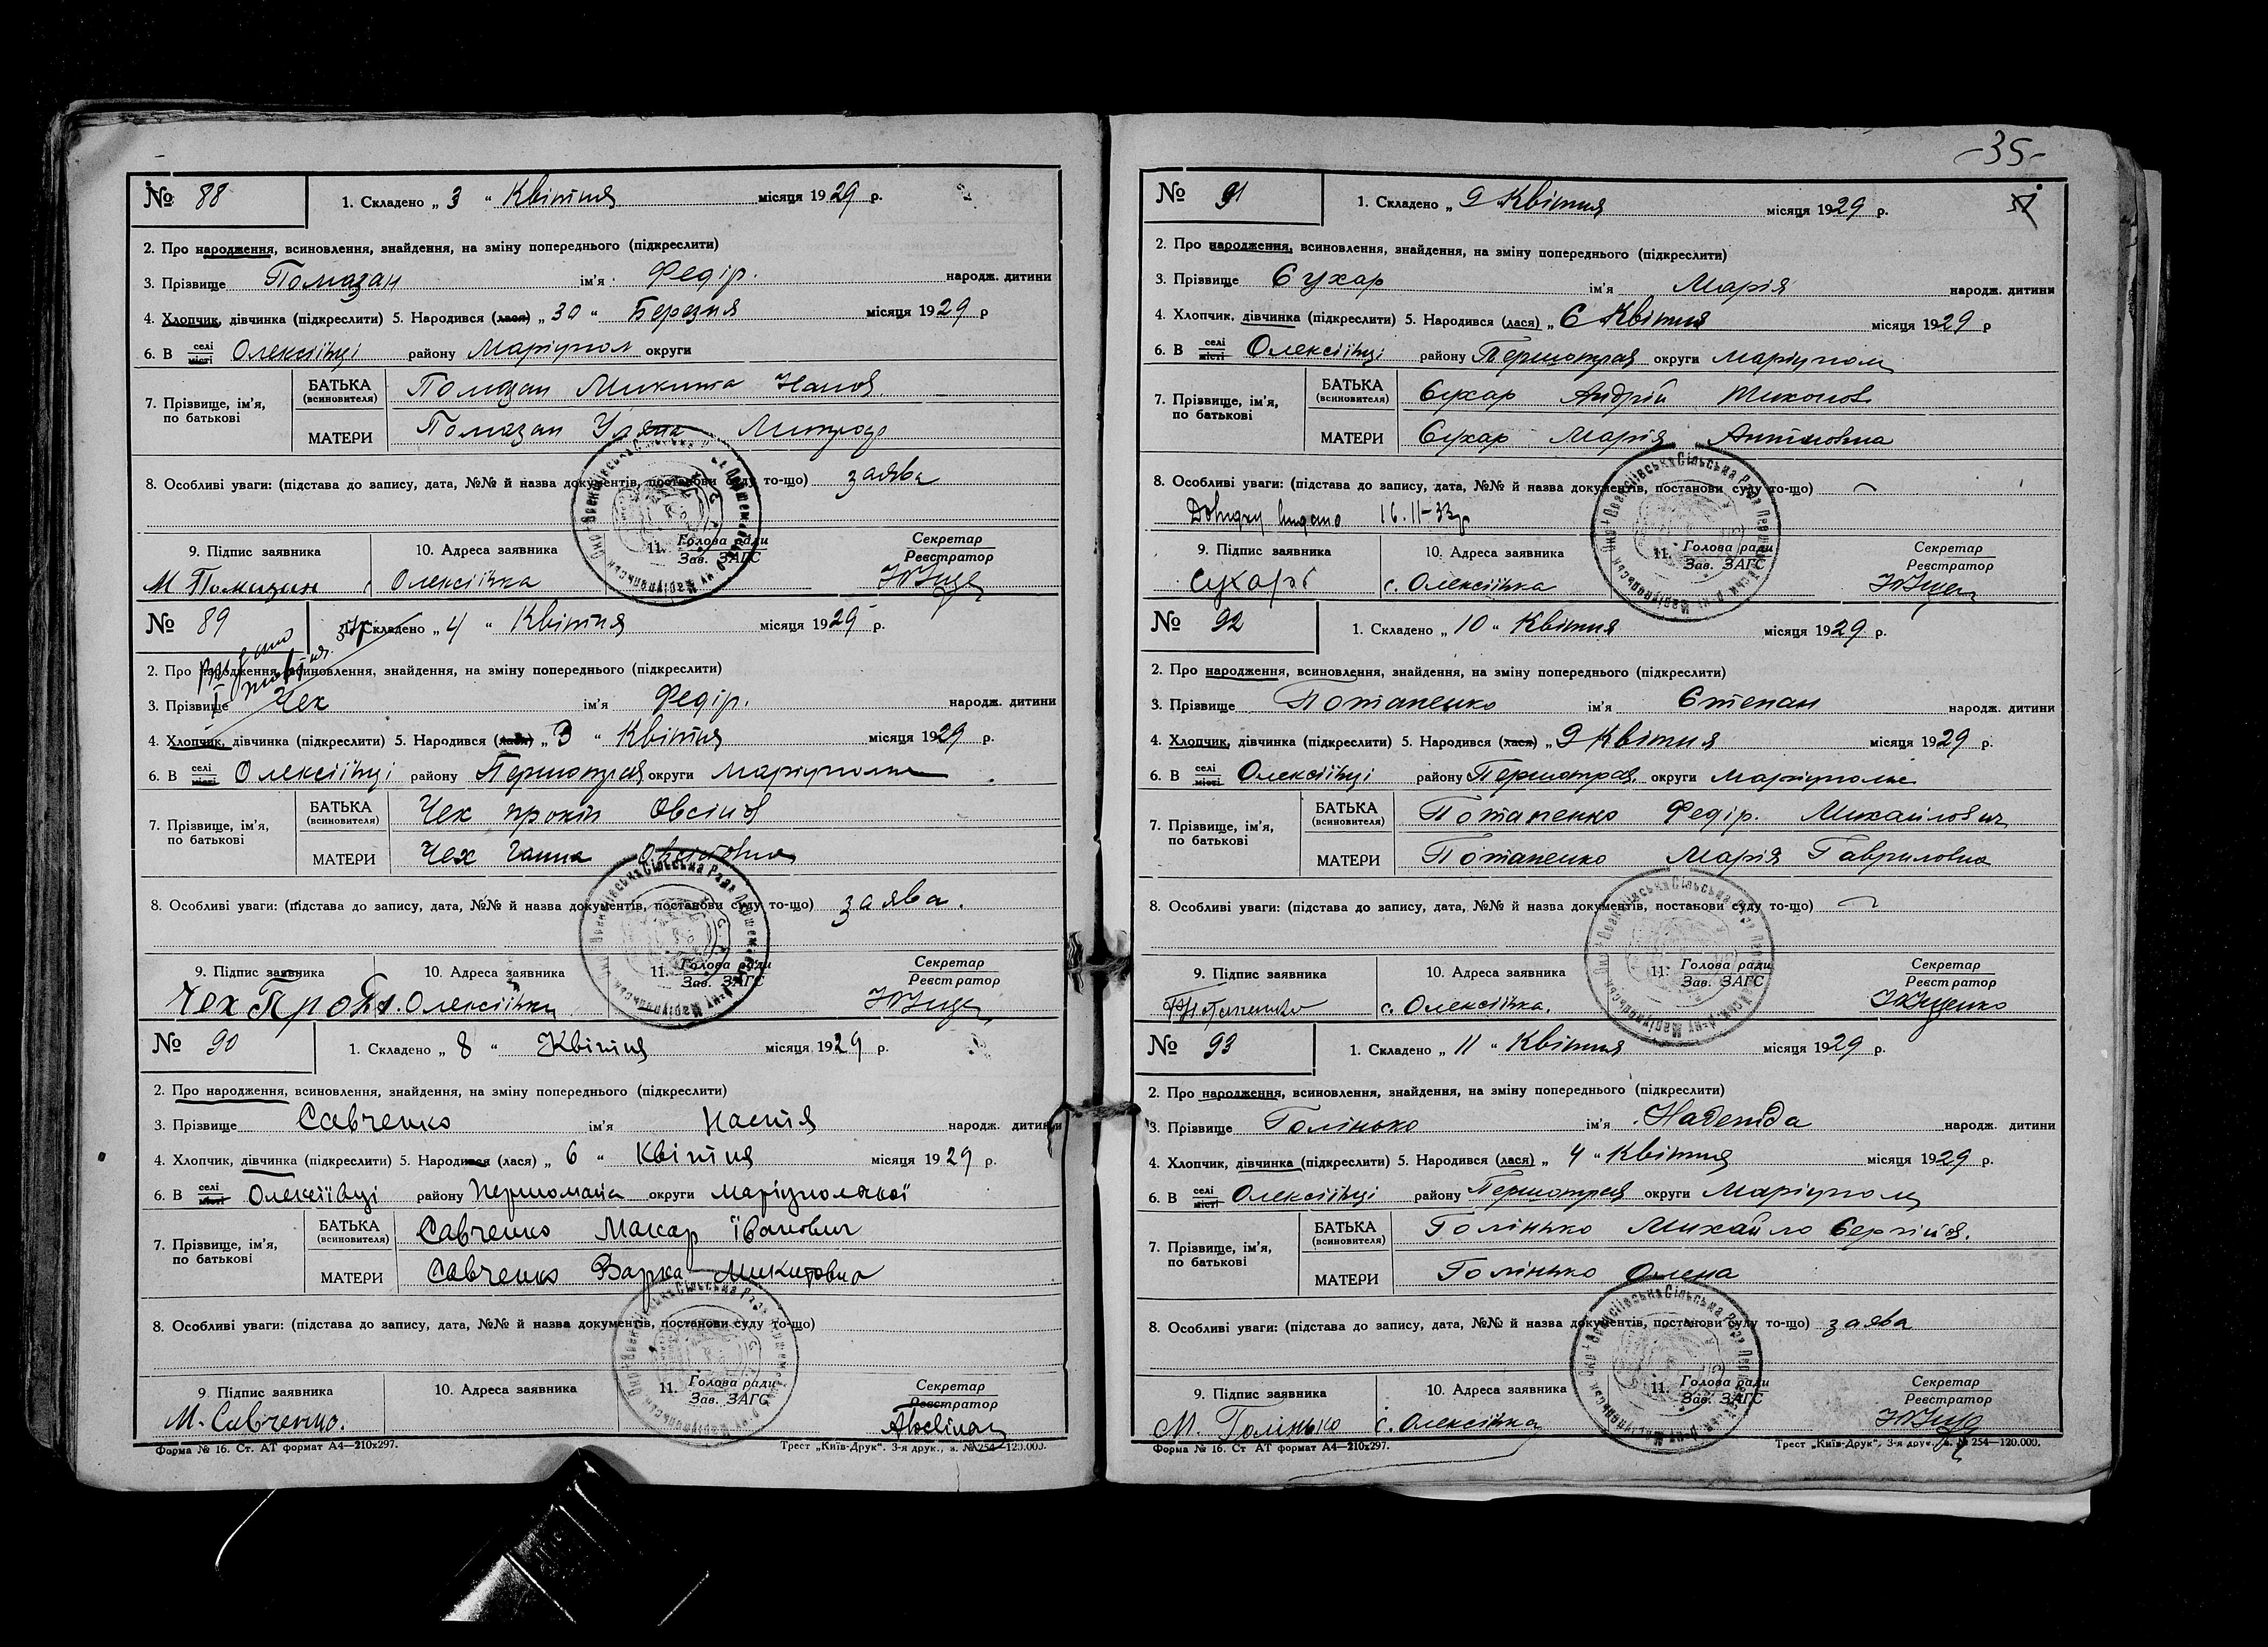 № 88 1. Складено „ 3 “ Квітня місяця 1929 р.
2. Про народження, всиновлення, знайдення, на зміну попереднього (підкреслити)
3. Прізвище Помазан ім'я Федір. народж. дитини
4. Хлопчик, дівчинка (підкреслити) 5. Народився (лася) „ 30 “ Березня місяця 1929 р
6. В селі місті Олексіївці району Маріупол округи
7. Прізвище, ім'я, по батькові
БАТЬКА (всиновителя) Помазан Микита
МАТЕРИ Помазан Уляна
8. Особливі уваги: (підстава до запису, дата, №№ й назва документів, постанови суду то-що) заява
9. Підпис заявника 10. Адреса заявника 11. Голова ради Зав. ЗАГС Секретар Реєстратор
М Помазан Олексіївка
№ 89 1. Складено „ 4 “ Квітня місяця 1929 р.
2. Про народження, всиновлення, знайдення, на зміну попереднього (підкреслити)
3. Прізвище Чех ім'я Федір. народж. дитини
4. Хлопчик, дівчинка (підкреслити) 5. Народився (лася) „ 3 “ Квітня місяця 1929 р.
6. В селі місті Олексіївці району округи
7. Прізвище, ім'я, по батькові
БАТЬКА (всиновителя) Чех
МАТЕРИ Чех Ганна
8. Особливі уваги: (підстава до запису, дата, №№ й назва документів, постанови суду то-що) заява.
9. Підпис заявника 10. Адреса заявника 11. Голова ради Зав. ЗАГС Секретар Реєстратор
Чех с. Олексіївка
№ 90 1. Складено „ 8 “ Квітня місяця 1929 р.
2. Про народження, всиновлення, знайдення, на зміну попереднього (підкреслити)
3. Прізвище Савченко ім'я Настя народж. дитини
4. Хлопчик, дівчинка (підкреслити) 5. Народився (лася) „ 6 “ Квітня місяця 1929 р.
6. В селі місті Олексіївці району округи Маріупольської
7. Прізвище, ім'я, по батькові
БАТЬКА (всиновителя) Савченко Макар Іванович
МАТЕРИ Савченко Варка Микитовна
8. Особливі уваги: (підстава до запису, дата, №№ й назва документів, постанови суду то-що)
9. Підпис заявника 10. Адреса заявника 11. Голова ради Зав. ЗАГС Секретар Реєстратор
М. Савченко.
Форма № 16. Ст. АТ формат А4—210х297. Трест „Київ-Друк“. 3-я друк. з. № 254—120.000.
-35-
№ 91 1. Складено „ 9 “ Квітня місяця 1929 р.
2. Про народження, всиновлення, знайдення, на зміну попереднього (підкреслити)
3. Прізвище Сухар ім'я Марія народж. дитини
4. Хлопчик, дівчинка (підкреслити) 5. Народився (лася) „ 6 Квітня місяця 1929 р
6. В селі місті Олексіївці району округи Маріупол
7. Прізвище, ім'я, по батькові
БАТЬКА (всиновителя) Сухар Андрій
МАТЕРИ Сухар Марія
8. Особливі уваги: (підстава до запису, дата, №№ й назва документів, постанови суду то-що)
Довідку видано 16.II-33р
9. Підпис заявника 10. Адреса заявника 11. Голова ради Зав. ЗАГС Секретар Реєстратор
с. Олексіївка
№ 92 1. Складено „ 10 “ Квітня місяця 1929 р.
2. Про народження, всиновлення, знайдення, на зміну попереднього (підкреслити)
3. Прізвище Потапенко ім'я Степан народж. дитини
4. Хлопчик, дівчинка (підкреслити) 5. Народився (лася) „ 9 Квітня місяця 1929 р.
6. В селі місті Олексіївці району округи
7. Прізвище, ім'я, по батькові
БАТЬКА (всиновителя) Потапенко Федір. Михайлович
МАТЕРИ Потапенко Марія Гавриловна
8. Особливі уваги: (підстава до запису, дата, №№ й назва документів, постанови суду то-що)
9. Підпис заявника 10. Адреса заявника 11. Голова ради Зав. ЗАГС Секретар Реєстратор
с. Олексіївка.
№ 93 1. Складено „ 11 “ Квітня місяця 1929 р.
2. Про народження, всиновлення, знайдення, на зміну попереднього (підкреслити)
3. Прізвище Голінько ім'я народж. дитини
4. Хлопчик, дівчинка (підкреслити) 5. Народився (лася) „ 4 “ Квітня місяця 1929 р.
6. В селі місті Олексіївці району округи Маріупол
7. Прізвище, ім'я, по батькові
БАТЬКА (всиновителя) Голінько Михайло
МАТЕРИ Голінько Олена
8. Особливі уваги: (підстава до запису, дата, №№ й назва документів, постанови суду то-що) заява
9. Підпис заявника 10. Адреса заявника 11. Голова ради Зав. ЗАГС Секретар Реєстратор
М. Голінько с. Олексіївка
Форма № 16. Ст АТ формат А4—210х297. Трест „Київ-Друк“, 3-я друк. з. № 254—120.000.